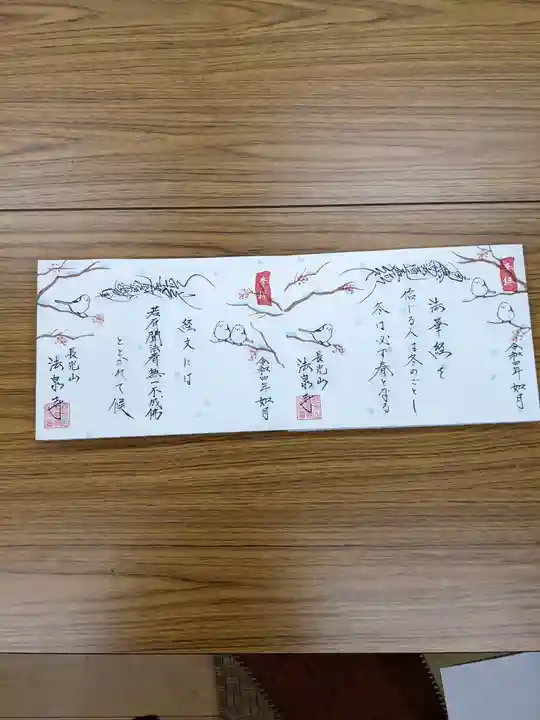 法華経を
信じる人は冬のごとし
冬は必ず春となる
令和四年 如月
長光山
法泉寺
経文には
若有聞法者無一不成佛
ととかれて候
令和四年 如月
長光山
法泉寺